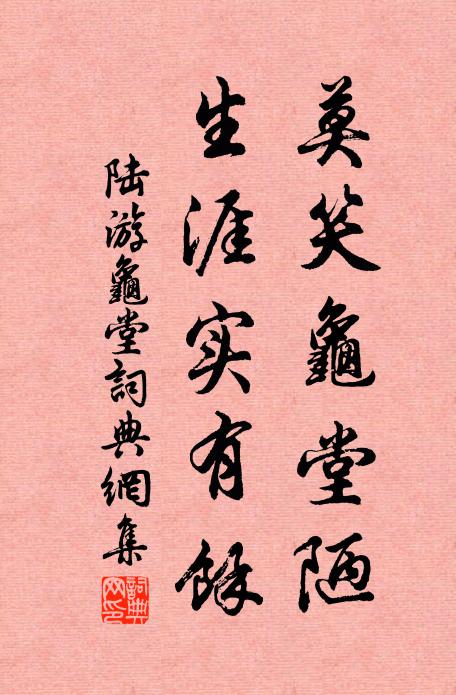 莫笑龜堂陋
生涯实有餘
陆游龜堂詞典網集
詞典
网印